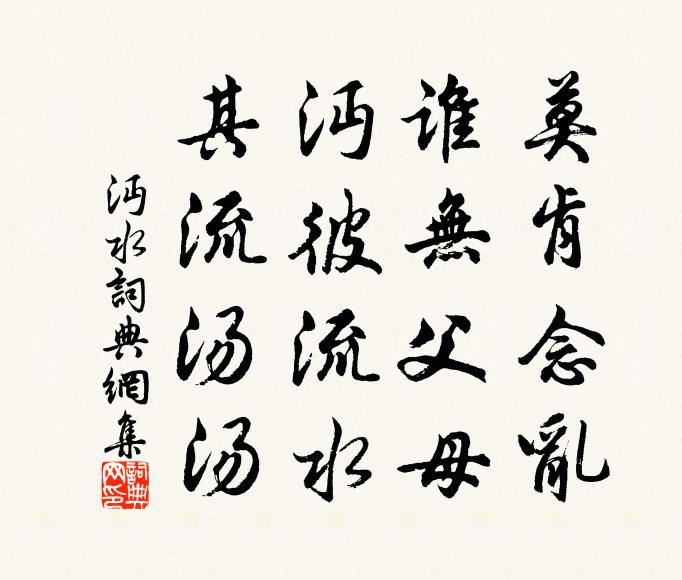 莫肯念亂
誰無父母
沔彼流水
其流湯湯
沔水詞典網集
詞典網印